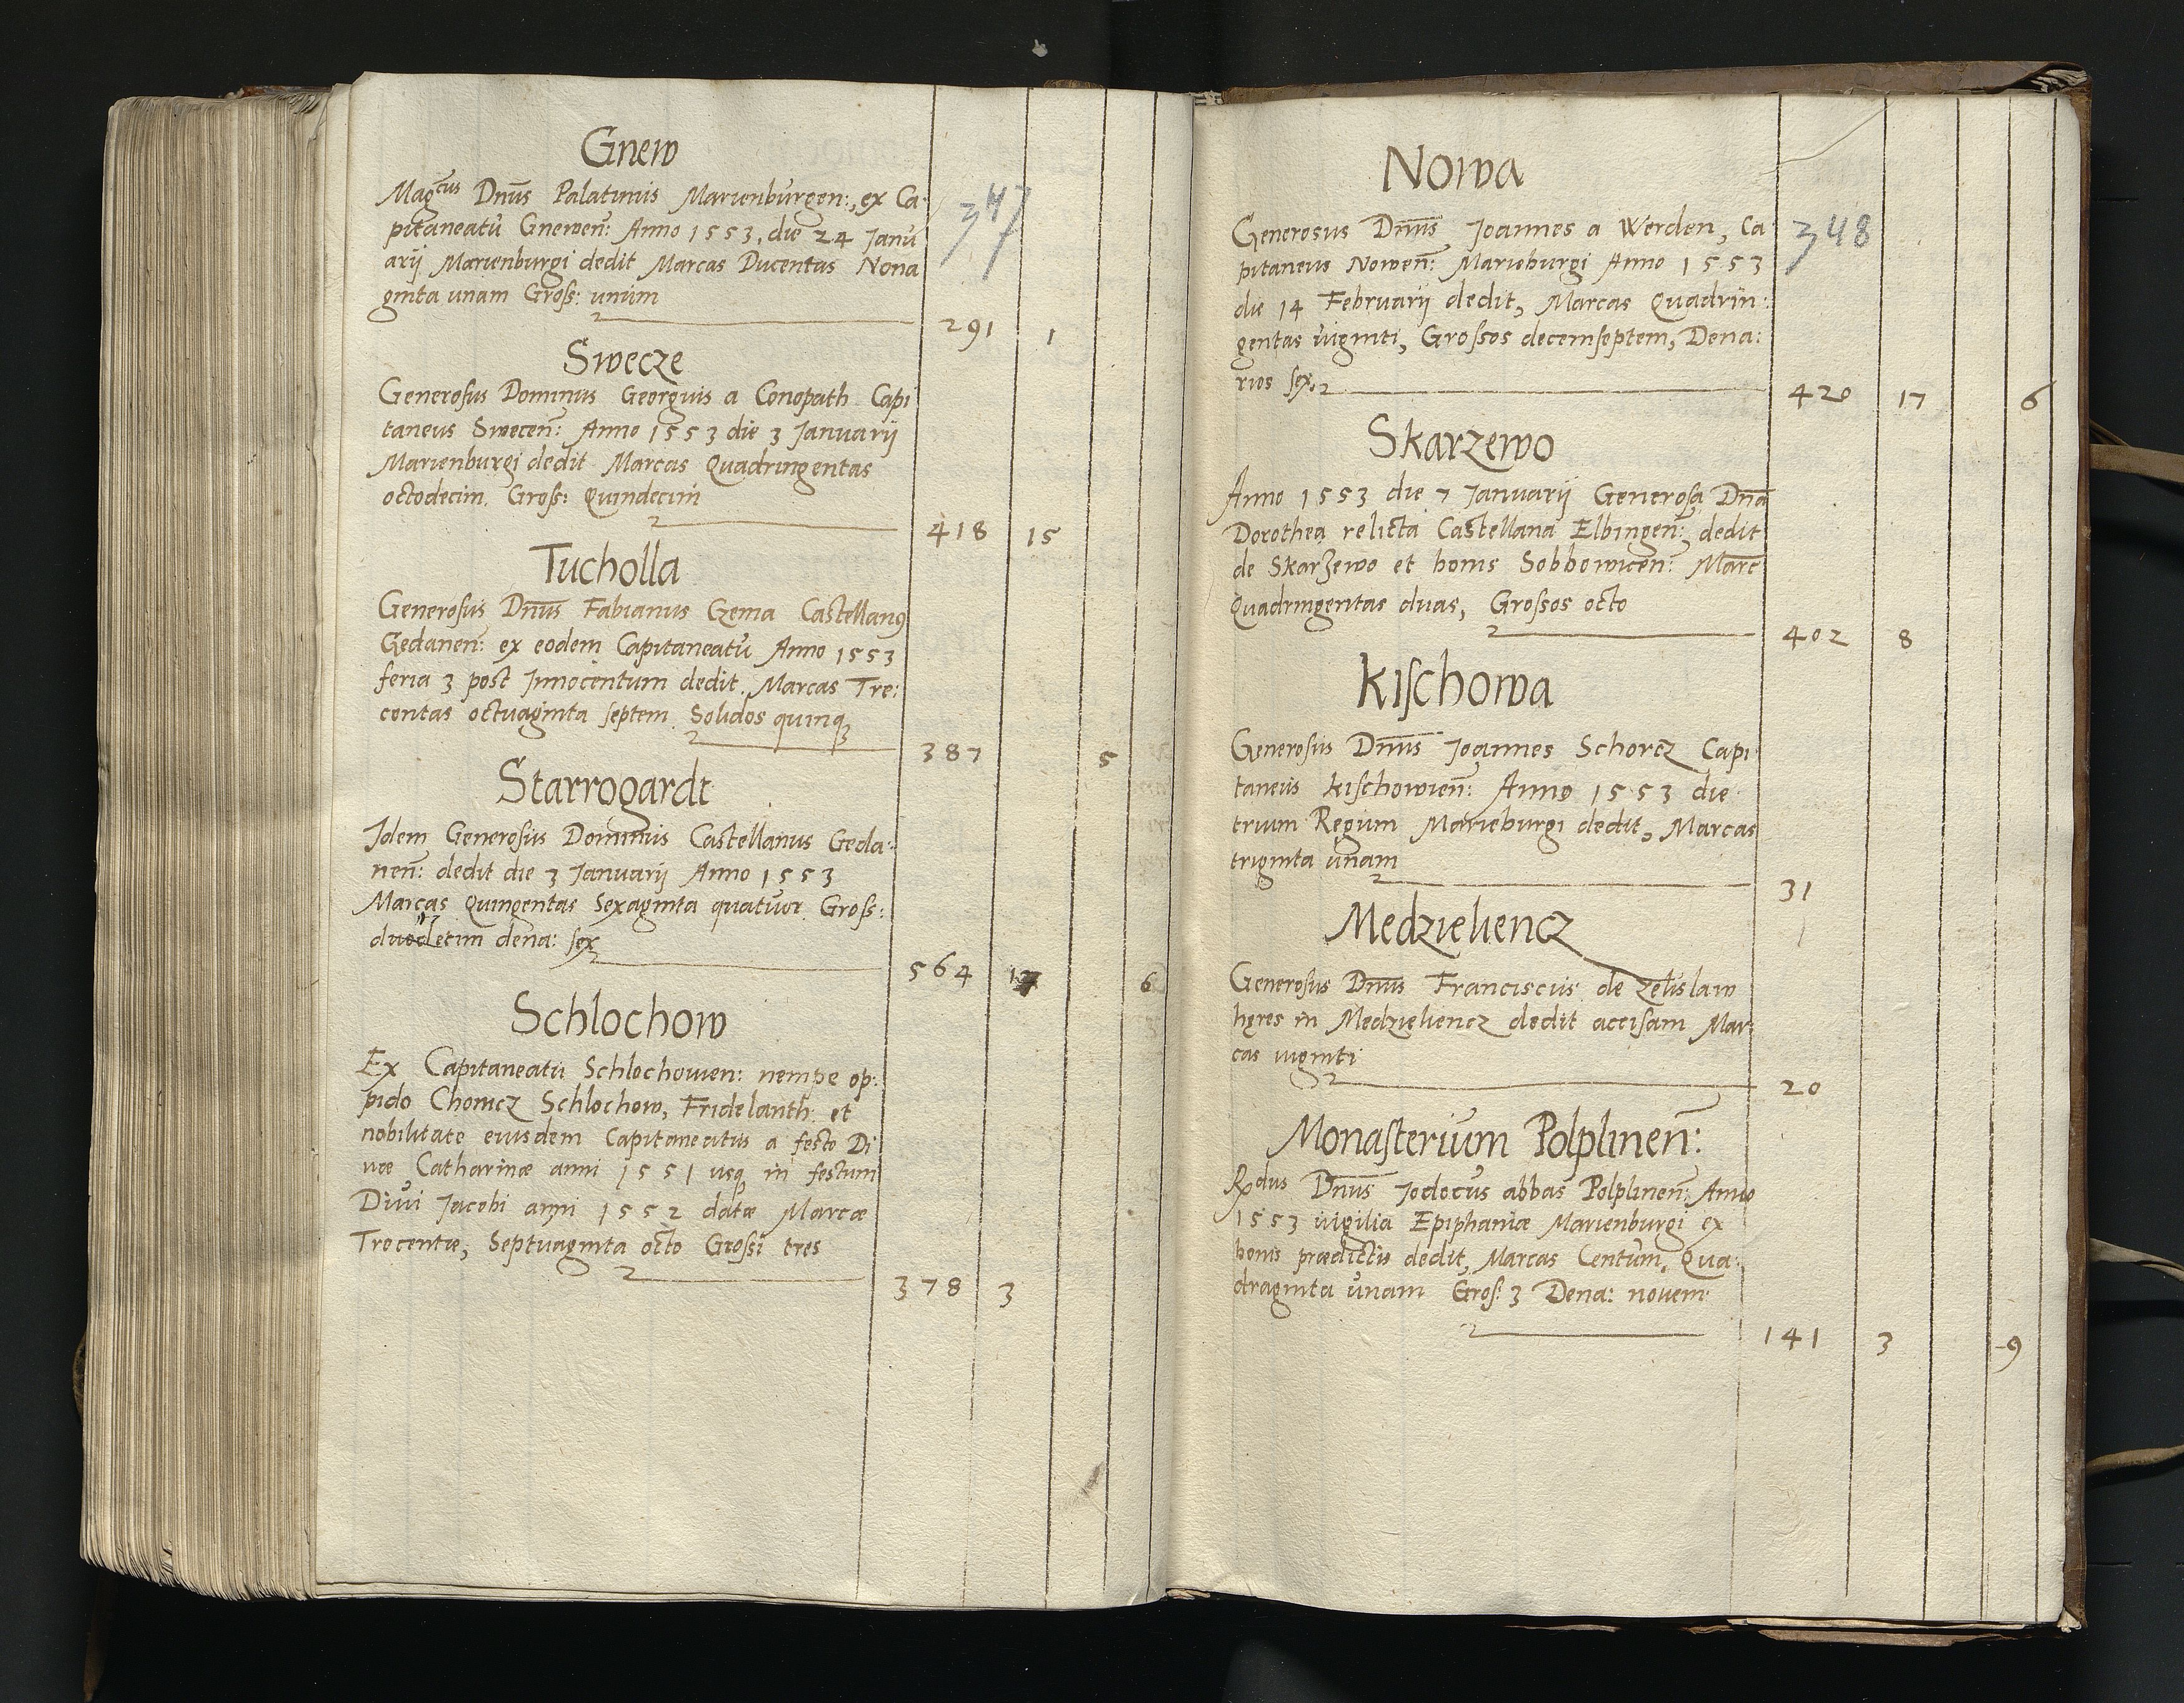 Gnew
Magcus Dnus Palatinus Marienburgen:, ex Ca- 347
pitaneatu Gnewen: Anno 1553, die 24 Janu
arij Marienburgi dedit Marcas Ducentas Nona
ginta unam Gross: unum
291 1
Swecze
Generosus Dominus Georgius a Conopath Capi
taneus Swecen: Anno 1553 die 3 Januarij
Marienburgi dedit Marcas Quadringentas
octodecim. Gross: Quindecim
418 15
Tucholla
Generosus Dnus Fabianus Czema Castellanus
Gedanen: ex eodem Capitaneatu Anno 1553
feria 3 post Innocentum dedit. Marcas Tre:
centas octuaginta septem. Solidos quinq3
387 5
Starrogardt
Idem Generosus Dominus Castellanus Geda-
nen: dedit die 3 Januarij Anno 1553
Marcas Quingentas Sexaginta quatuor Gross:
duodecim dena: sex
564 17 6
Schlochow
Ex Capitaneatu Schlochowien: nempe op:
pido Chonicz Schlochow, Fridelanth: et
nobilitate eiusdem Capitaneatus a festo Di
uæ Catharinæ anni 1551 usq3 in festum
Diui Jacobi anni 1552 datæ Marcæ
Trecentæ, Septuaginta octo Grossi tres
378 3
Nowa
Generosus Dnus Joannes a Werden, Ca 348
pitaneus Nowen: Marieburgi Anno 1553
die 14 Februarij dedit, Marcas Quadrin:
gentas uiginti, Grossos decemseptem, Dena:
rios sex.
420 17 6
Skarzewo
Anno 1553 die 7 Januarij Generosa Dna
Dorothea relicta Castellana Elbingen: dedit
de Skarzewo et bonis Sobbowicen: Marc
Quadringentas duas, Grossos octo
402 8
Kischowa
Generosus Dnus Joannes Schorcz Capi
taneus Kischowien: Anno 1553 die
trium Regum Marieburgi dedit, Marcas
triginta unam
31
Medzieliencz
Generosus Dnus Franciscus de Zelislaw
hęres in Medzieliencz dedit accisam Mar:
cas uiginti
20
Monasterium Polplinen:
Rdus Dnus Jodocus abbas Polplinen: Anno
1553 uigilia Epiphaniæ Marienburgi ex
bonis prædictis dedit, Marcas Centum, Qua:
draginta unam Gros: 3 Dena: nouem
141 3 9